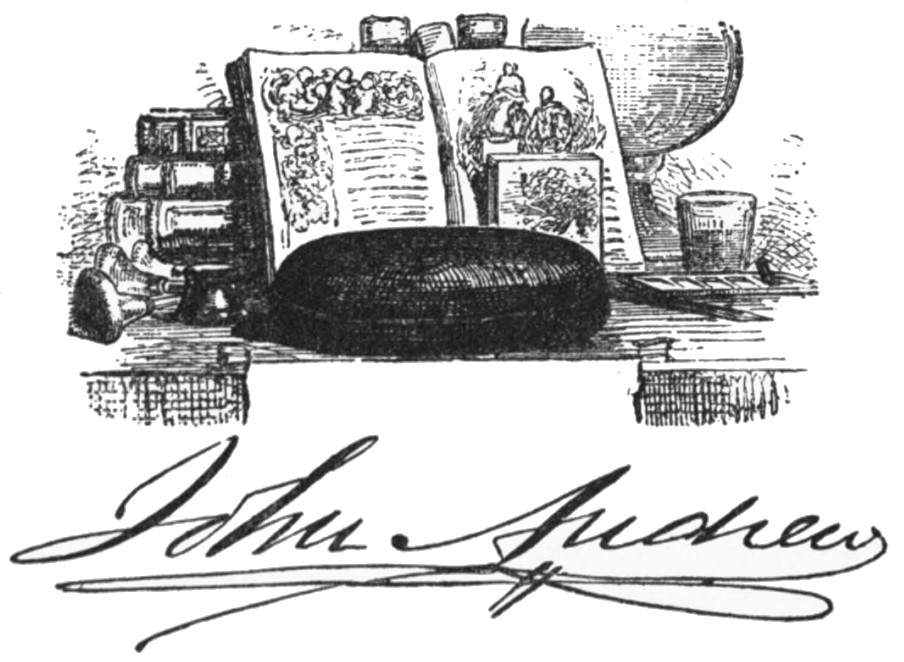 John Andrew